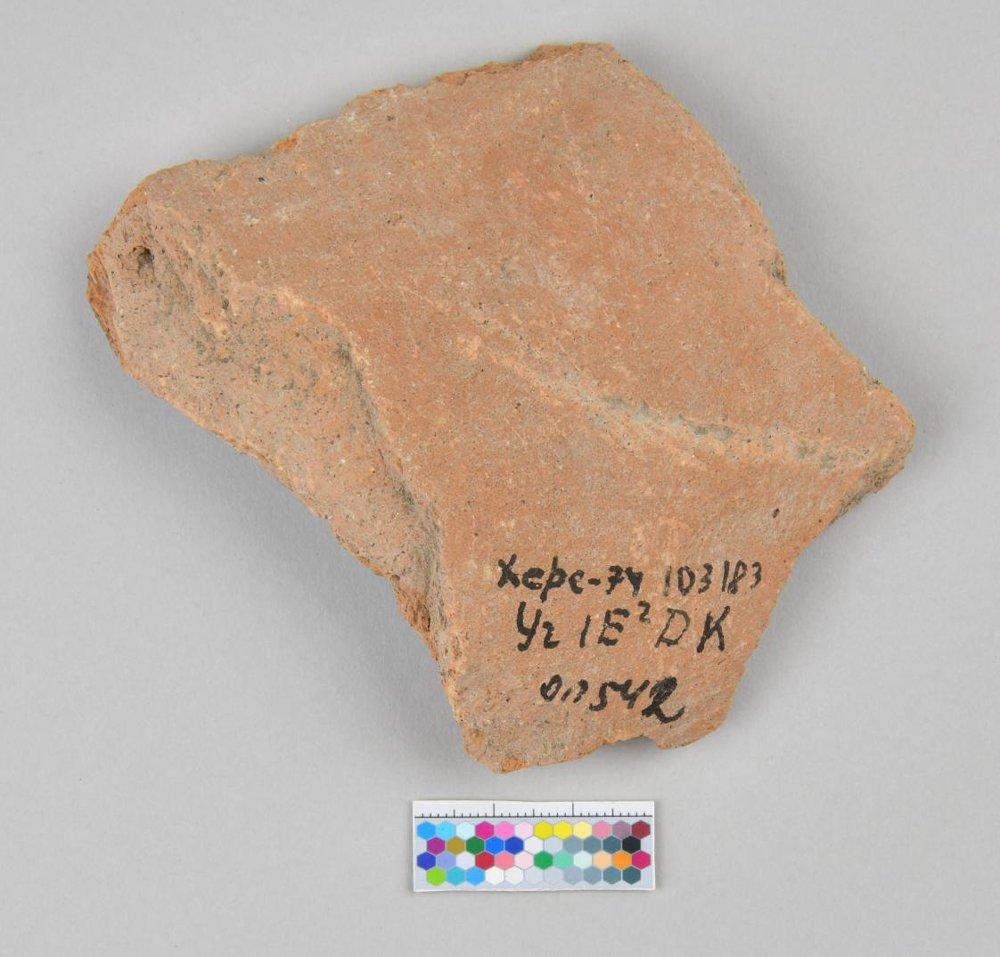 Херс-74 103183
У2 1Е²DK
оп542